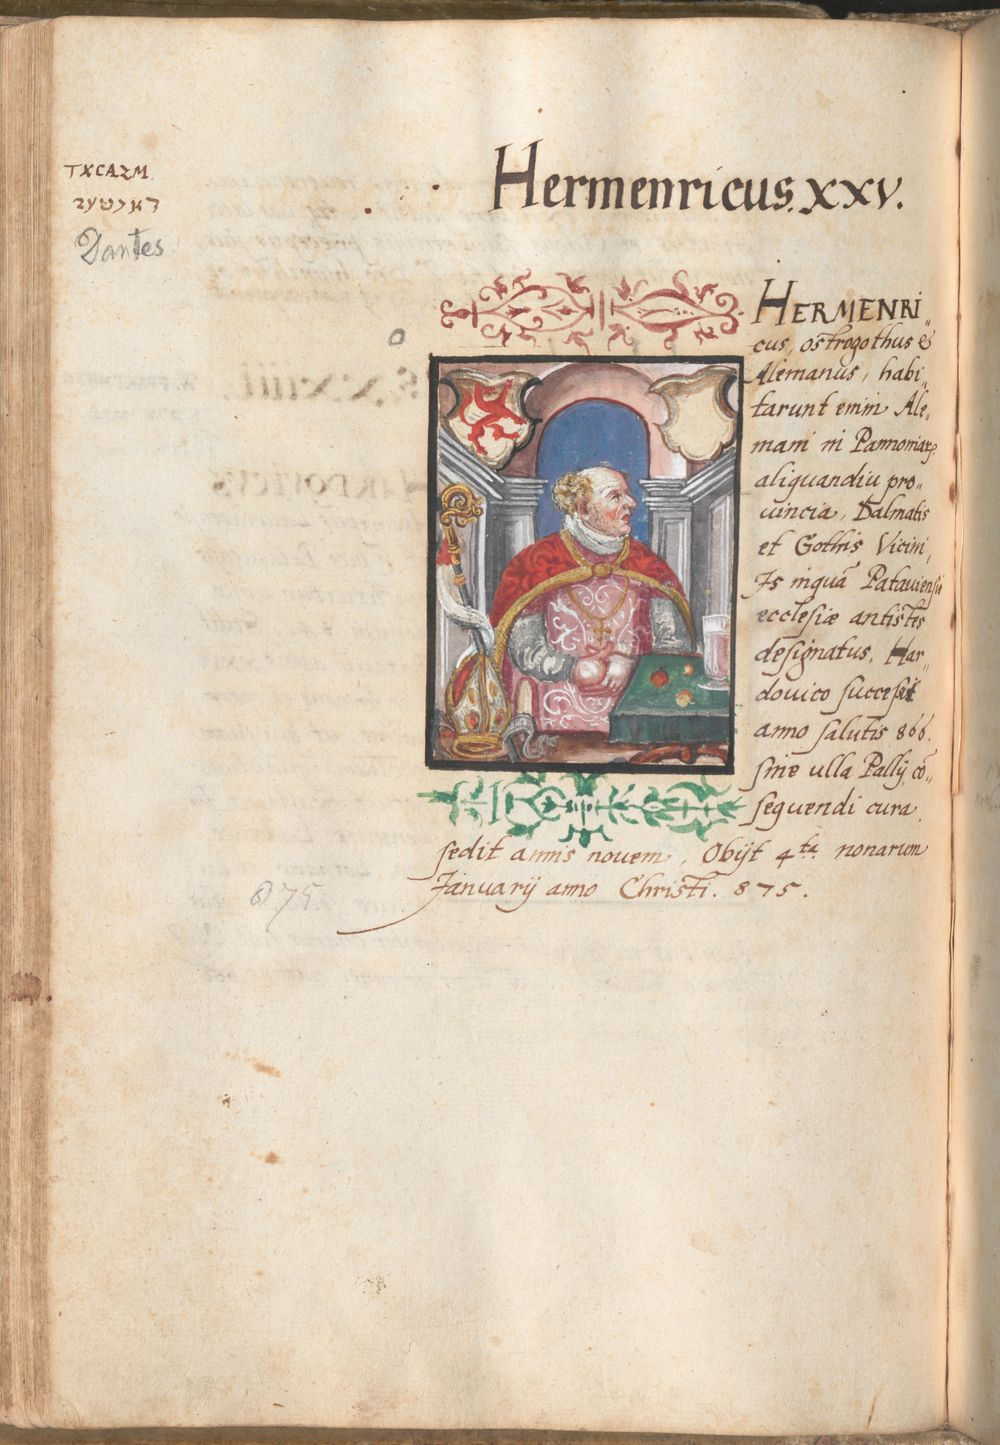 Hermenricus. XXV.
Dantes
HERMENRI„
cus, ostrogothus &
Alemanus, habi„
tarunt enim Ale„
mani in Pannoniarꝫ
aliquandiu pro„
uincia, Dalmatis
et Gothis Vicini,
Is inquã Patauiensis
ecclesiæ antistes
designatus, Har„
douico successit
anno salutis 866.
sine ulla Pallij cõ„
sequendi cura
sedit annis novem, Obijt 4ta nonarum
Januarij anno Christi. 875.
875